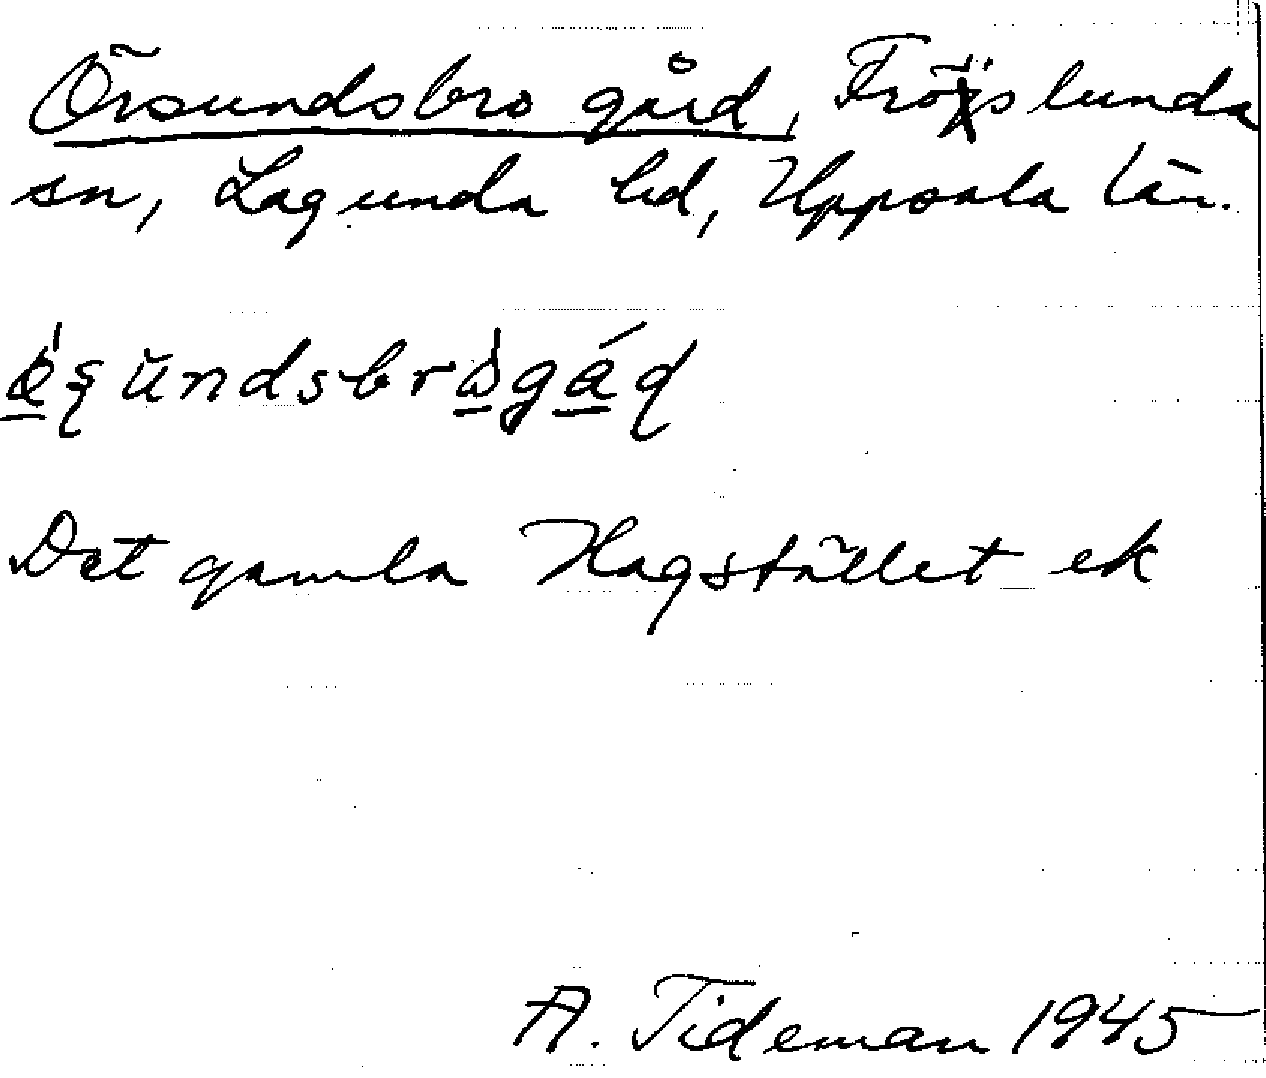 Örsundsbro gård, Fröslunda
sn, Lagunda hd, Uppsala län.
Det gamla Hagstället ek
A. Tideman 1945